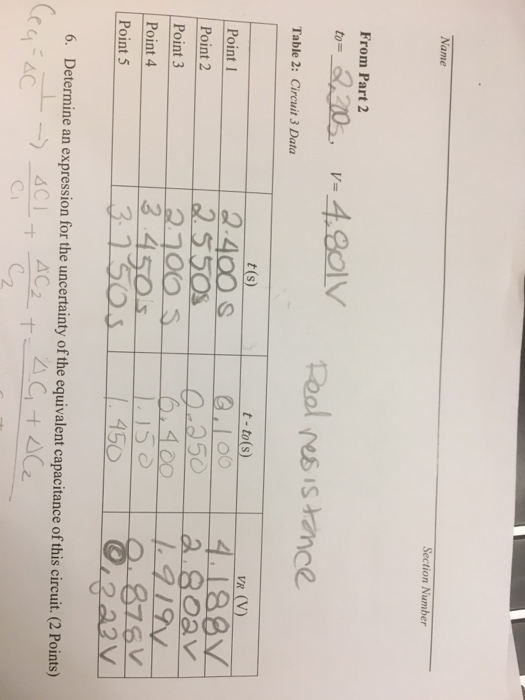 Name
Section Number
From Part 2
t0= 2.300s, V= 4.801V
Real resistance
Table 2: Circuit 3 Data
t (s) t - t0(s) VR (V)
Point 1 2.400 s 0.100 4.188V
Point 2 2.550s 0.250 2.802V
Point 3 2.700 s 0.400 1.919V
Point 4 3.450s 1.150 0.878V
Point 5 3.750s 1.450 0.323V
6. Determine an expression for the uncertainty of the equivalent capacitance of this circuit. (2 Points)
Ceq = 1/ΔC → ΔC1/C1 + ΔC2/C2 + = ΔC1 + ΔC2